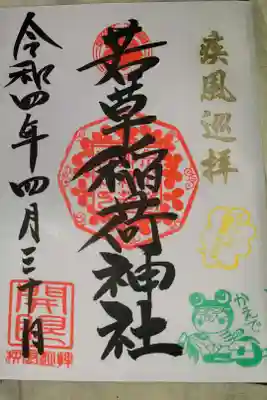 疾風巡拝
若草稲荷神社
令和四年四月三十日
かえで
開